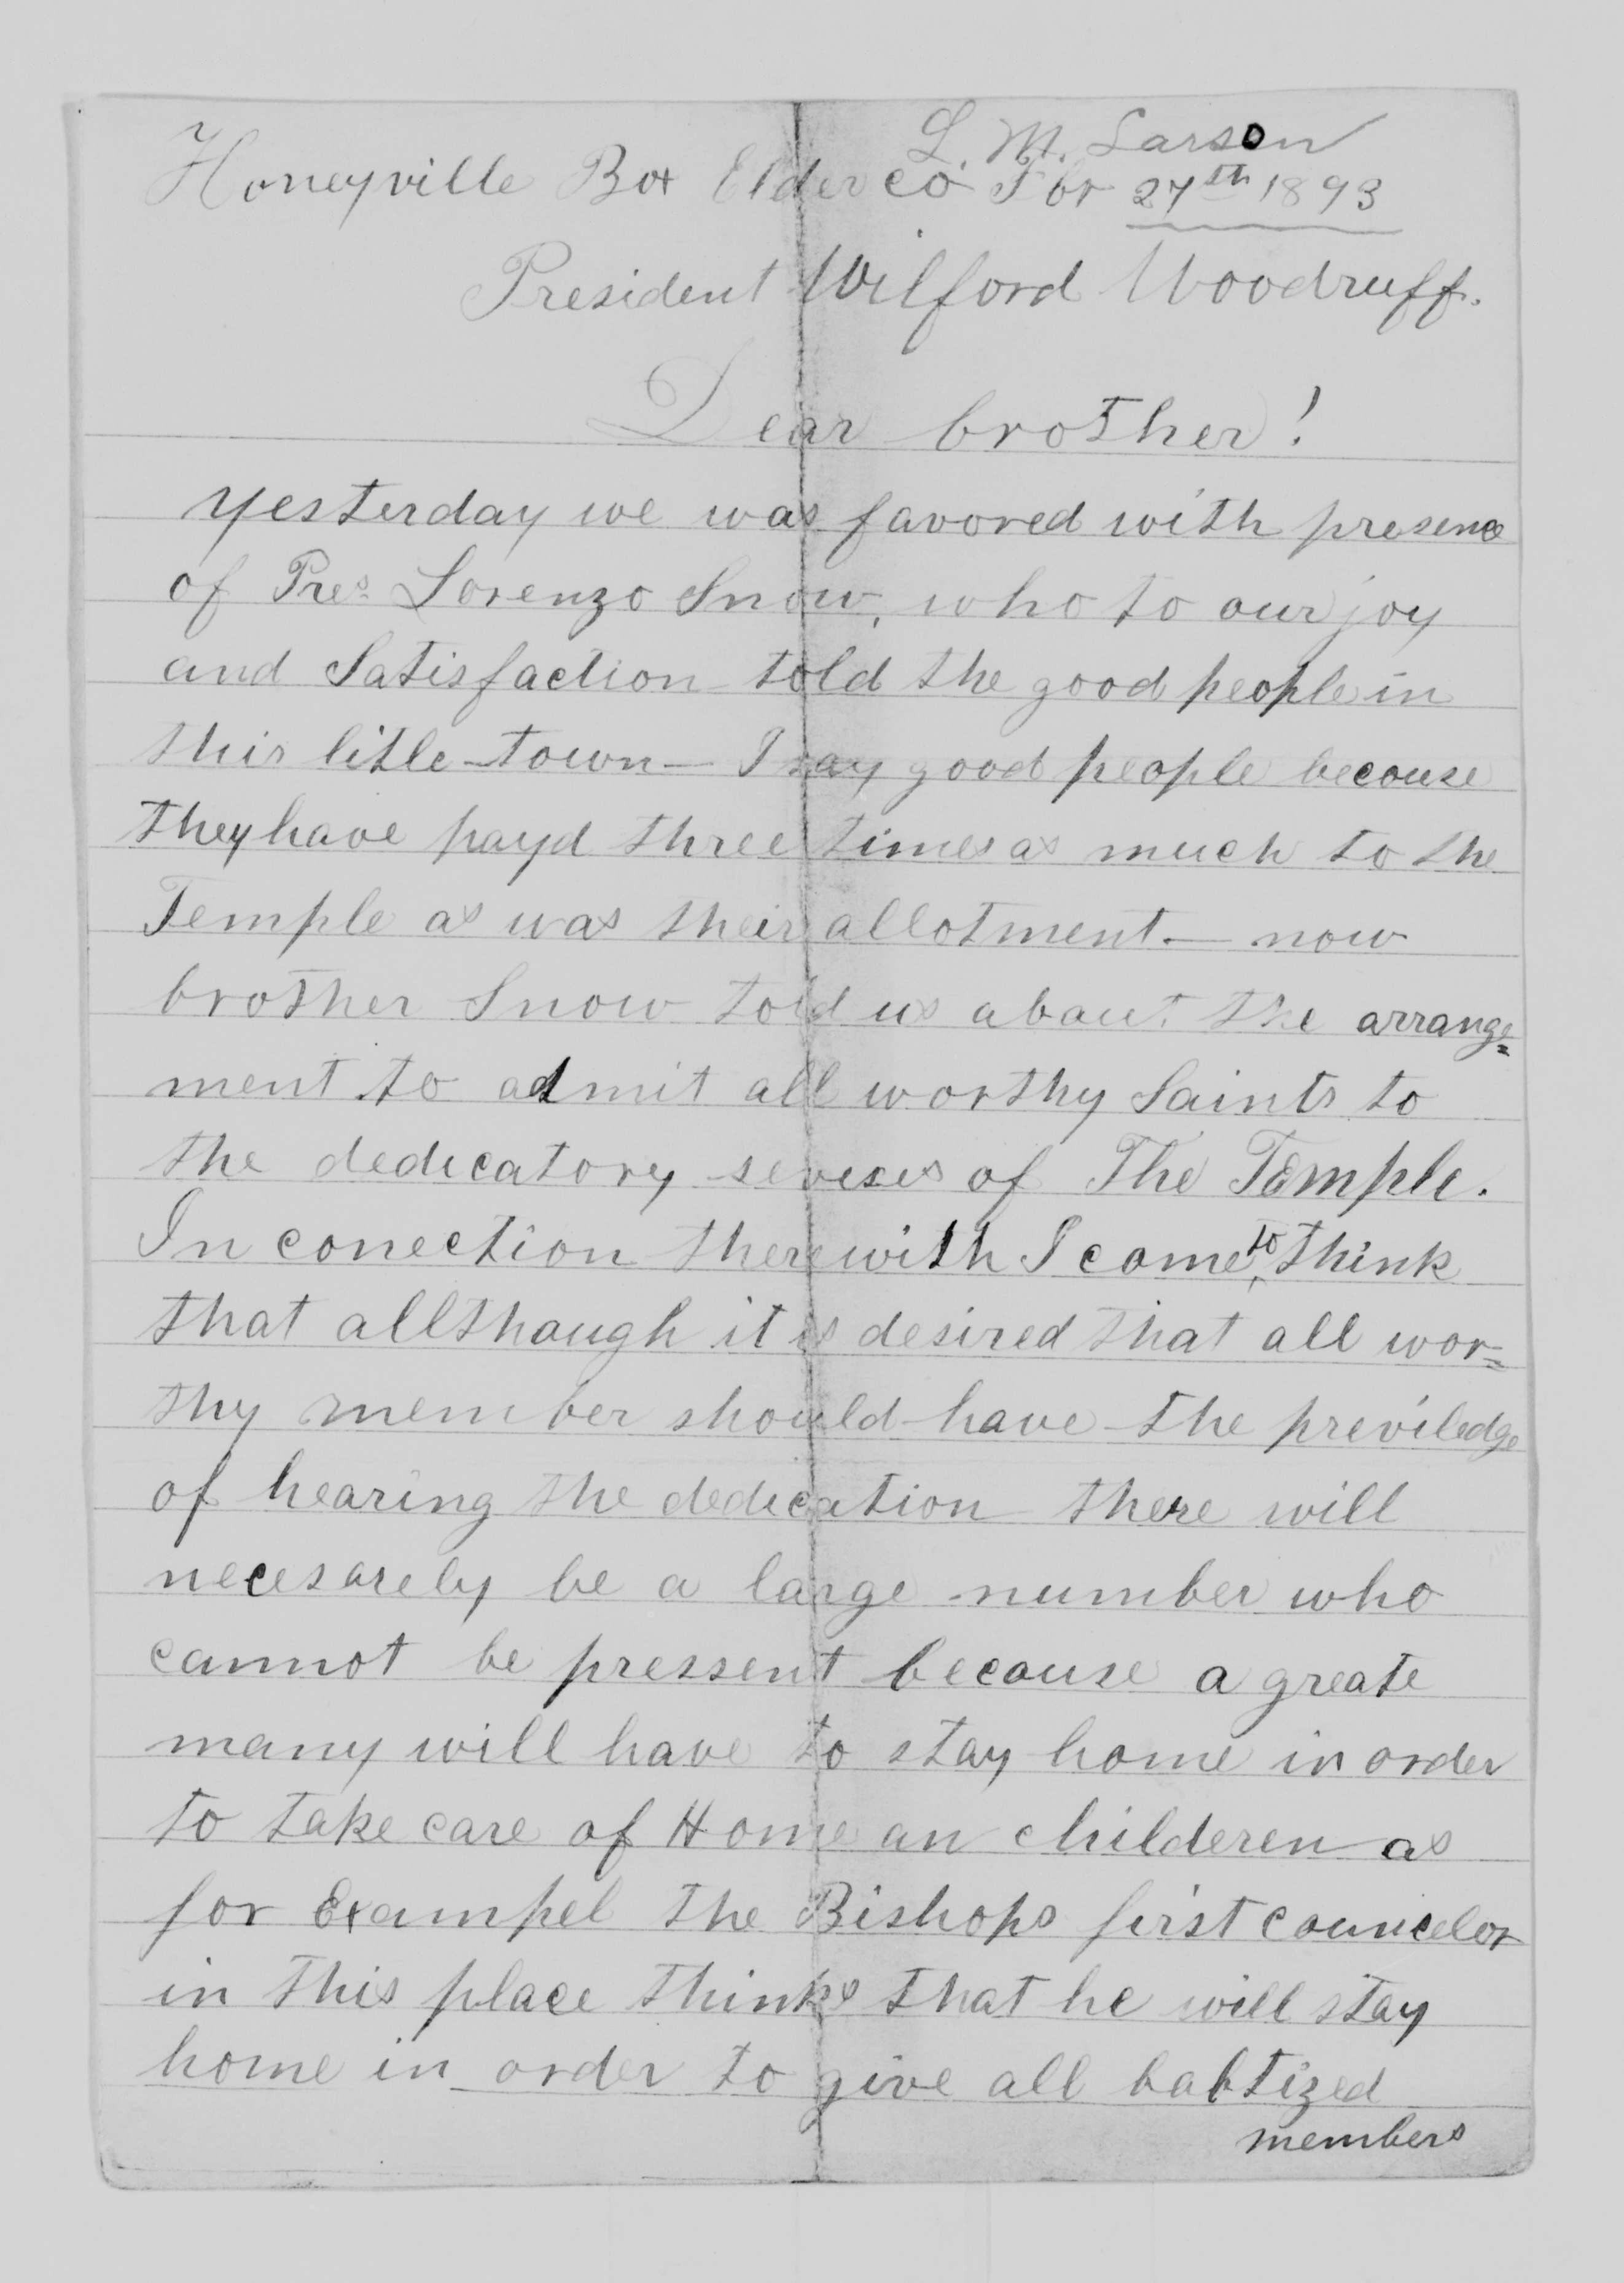 L. M. Larson
Honeyville Box Elder Co Fbr 27th 1893
President Wilford Woodruff.
Dear brother!
Yesterday we was favored with presence
of Pres. Lorenzo Snow, who to our joy
and Satisfaction told the good people in
this litle town — I say good people becouse
they have payd three times as much to the
Temple as was their allotment — now
brother Snow told us about the arrange=
ment to admit all worthy Saints to
the dedicatory servises of The Temple.
In conection therewith I come to think
that allthough it is desired that all wor=
thy member should have the previledge
of hearing the dedication there will
necesarely be a large number who
cannot be pressent becouse a greate
many will have to stay home in order
to take care of Home an childeren as
for Exampel the Bishops first councelor
in this place thinks that he will stay
home in order to give all babtized
members